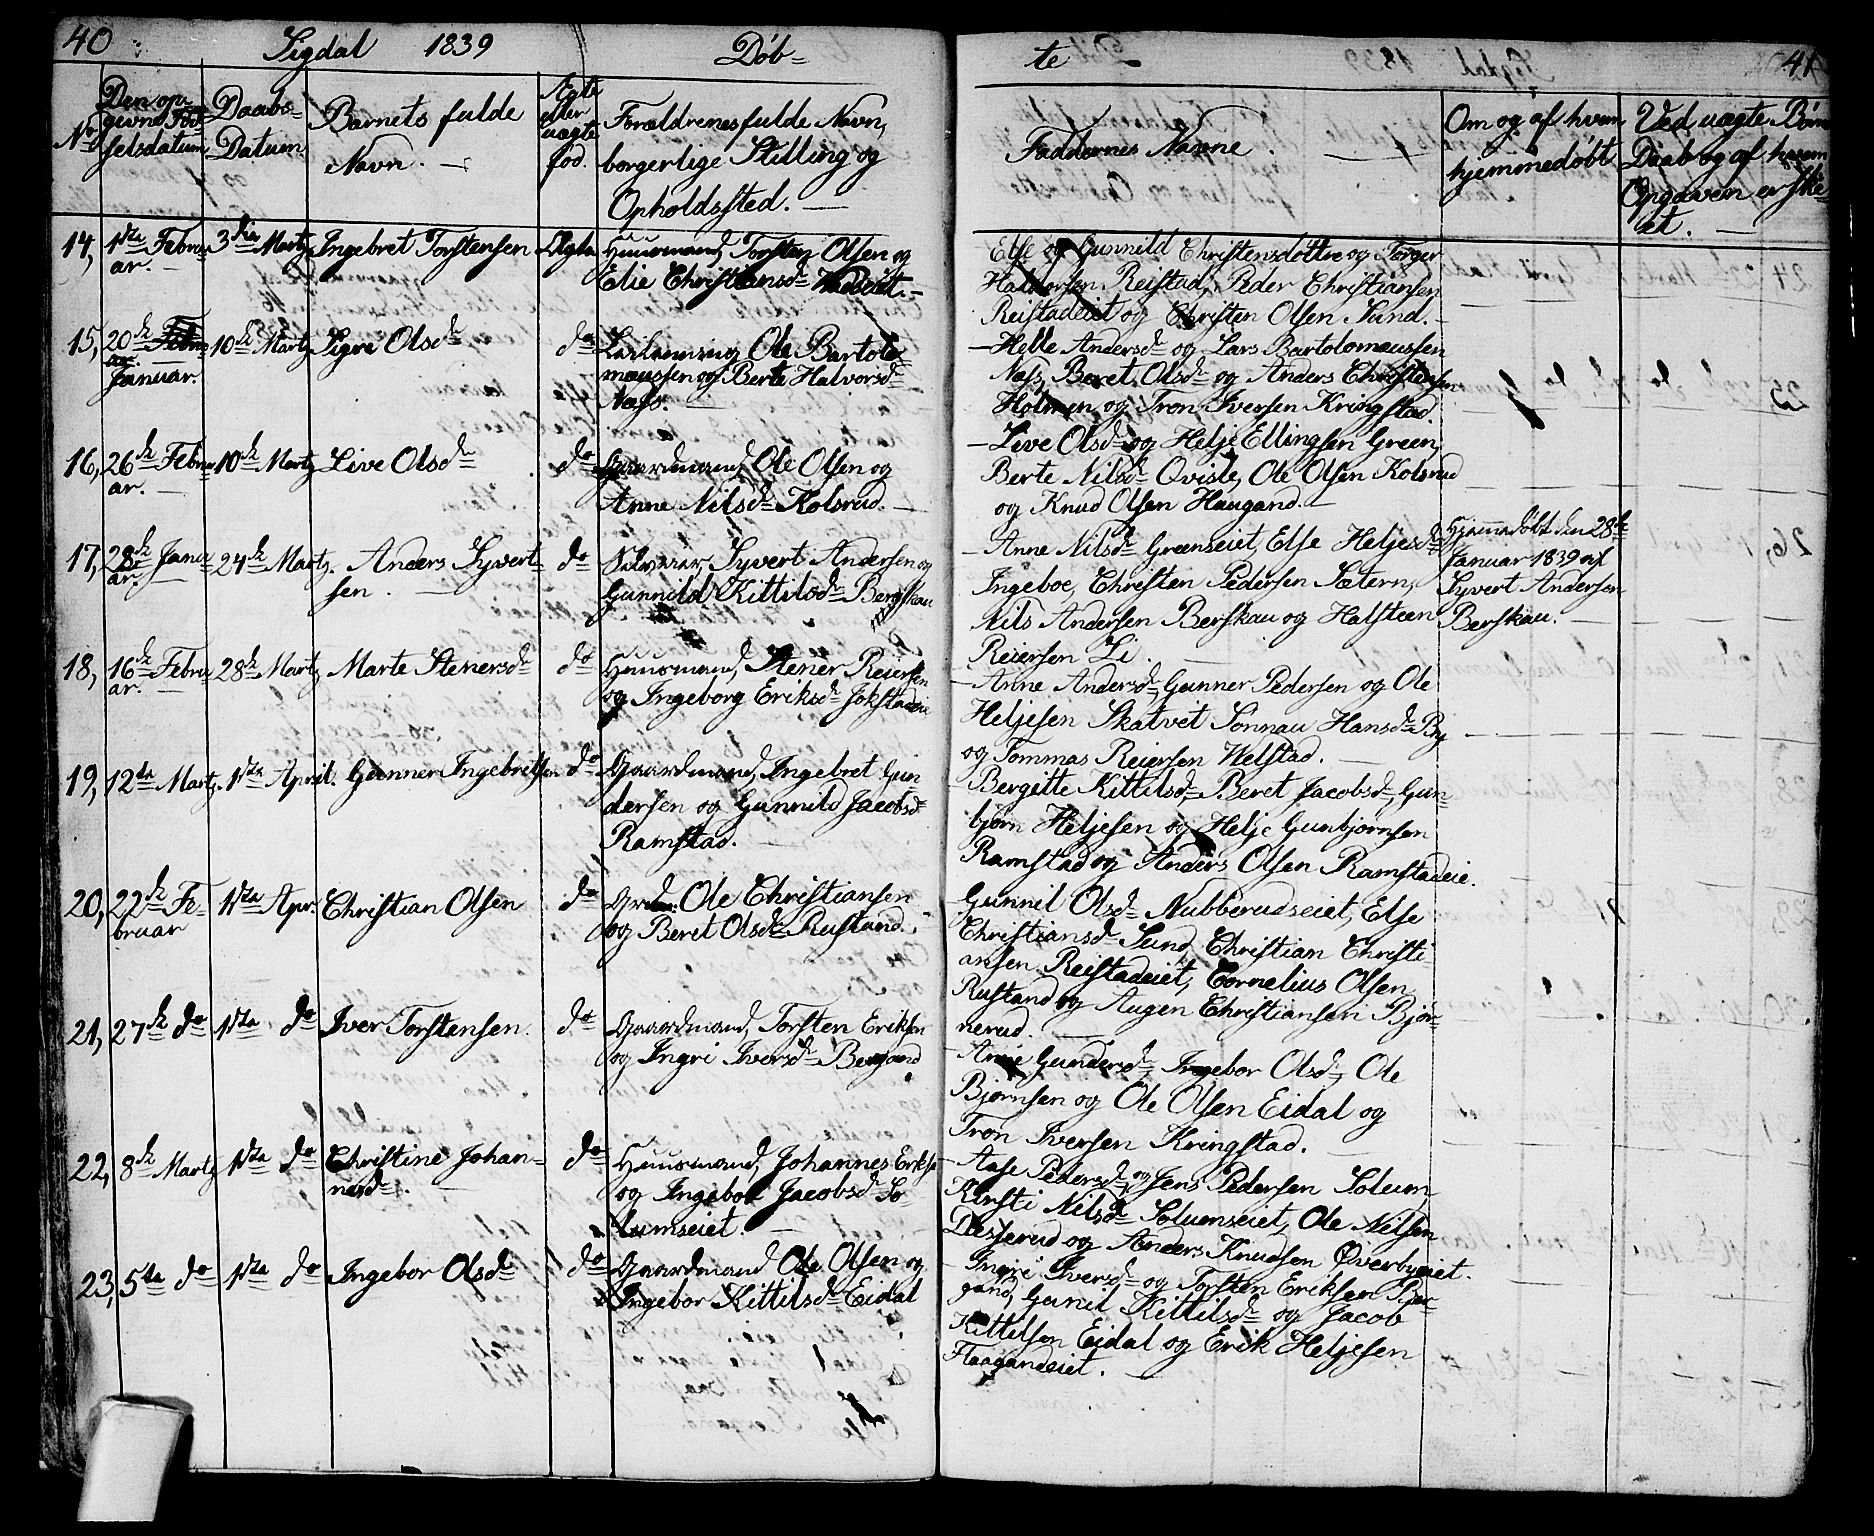 40
Sigdal 1839
Døb=
te
41
No
Den op=
givne Fød=
selsdatum
Daabs=
Datum.
Barnets fulde
Navn. —
Ægte
eller
uægte
fød.
Forældrenes fulde Navn,
borgerlige Stilling og
Opholdssted. —
Faddernes Navne. —
Om og af hvem
hjemmedøbt
Ved uægte Børns
Daab og af hvem
Opgaven er ske=
et. —
14, 1ste Febru
ar. —
3die Martz
Ingebret Torstensen
Ægte
Huusmand, Torsten Olsen og
Elie Christiansd.
Else og Gunnild Christensdøttre og Torger
Haldorsen Reistad, Peder Christiansen
Reistadeiet og Christen Olsen Sund. —
15, 20de Febru
ar.
Januar.
10de Martz
Sigri Olsdr
do
Ole Bartolo
mæussen og Berte Halvorsdr
Næss. —
— Helle Andersdr og Lars Bartolomæussen
Næss, Beret Olsdr og Anders Christensen
Holmen og Tron Iversen Kringstad.
16, 26de Febru
ar. —
10de Martz
Live Olsdr
do
Gaardmand, Ole Olsen og
Anne Nilsdr Kolsrud. —
— Live Olsdr og Helje Ellingsen Green,
Berte Nilsdr Qvisle, Ole Olsen Kolsrud
og Knud Olsen Haugand. —
17, 28de Janu
ar. —
24de Martz.
Anders Syvert=
sen. —
do
Syvert Andersen og
Gunnild Kittilsdr Bergskau
— Anne Nilsdr Greenseiet, Else Heljesdr
Ingeboe, Christen Pedersen Sætern,
Nils Andersen Berskau og Halsteen
Reiersen Li. —
Hjemmedøbt den 28de
Januar 1839 af
Syvert Andersen
Berskau. —
18, 16de Febru
ar. —
28de Martz
Marte Stenersdr
do
Huusmand, Stener Reiersen
og Ingeborg Eriksdr Jokstadeie
— Anne Andersdr, Gunner Pedersen og Ole
Heljesen Skatvet Sønnau Hansdr By
og Tommas Reiersen Welstad. —
19, 12te Martz.
1ste April.
Gunner Ingebretsen
do
Gaardmand, Ingebret Gun
dersen og Gunnild Jacobsdr
Ramstad. —
— Bergitte Kittilsdr, Beret Jacobsdr, Gun=
bjørn Heljesen og Helje Gunbjørnsen
Ramstad og Anders Olsen Ramstadeie.
20, 22de Fe=
bruar
1ste Apr.
Christian Olsen
do
Ole Christiansen
og Beret Olsdr Rustand.
Gunnil Olsdr Nubberudseiet, Else
Christiansdr Sund, Christian Christi=
ansen Reistadeiet, Cornelius Olsen
Rustand og Augen Christiansen Bjør=
nerud. —
21, 27de do
1ste do
Iver Torstensen.
do
Gaardmand, Torsten Eriksen
og Ingri Iversdr Bergand
— Anne Gundersdr, Ingebor Olsdr, Ole
Bjørnsen og Ole Olsen Eidal og
Tron Iversen Kringstad. —
22, 8de Martz
1ste do
Christine Johan=
nesdr. —
do
Huusmand, Johannes Erikse
og Ingebor Jacobsdr So
lumseiet. —
— Aase Pedersdr og Jens Pedersen Solum,
Kirsti Nilsdr Solumseiet, Ole Nilsen
og Anders Knudsen Øverbyeiet.
23, 5te do
1ste do
Ingebor Olsdr
do
Gaardmand Ole Olsen og
Ingebor Kittilsdr Eidal
— Ingri Iversdr og Torsten Eriksen Ber=
gand, Gunil Kittilsdr og Jacob
Kittelsen Eidal og Erik Heljesen
Haagandeiet. —